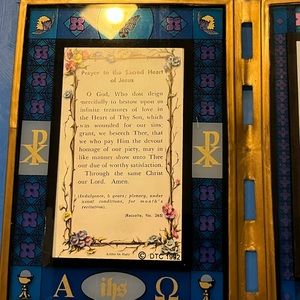 Prayer to the Sacred Heart
of Jesus
O God, Who dost deign
mercifully to bestow upon us
infinite treasures of love in
the Heart of Thy Son, which
was wounded for our sins:
grant, we beseech Thee, that
we who pay Him the devout
homage of our piety, may in
like manner show unto Thee
our due of worthy satisfaction.
Through the same Christ
our Lord. Amen.
(Indulgence, 5 years; plenary, under
usual conditions, for month's
recitation).
(Raccolta, No. 265)
Litho in Italy
© DTC 1992
Α ihs Ω